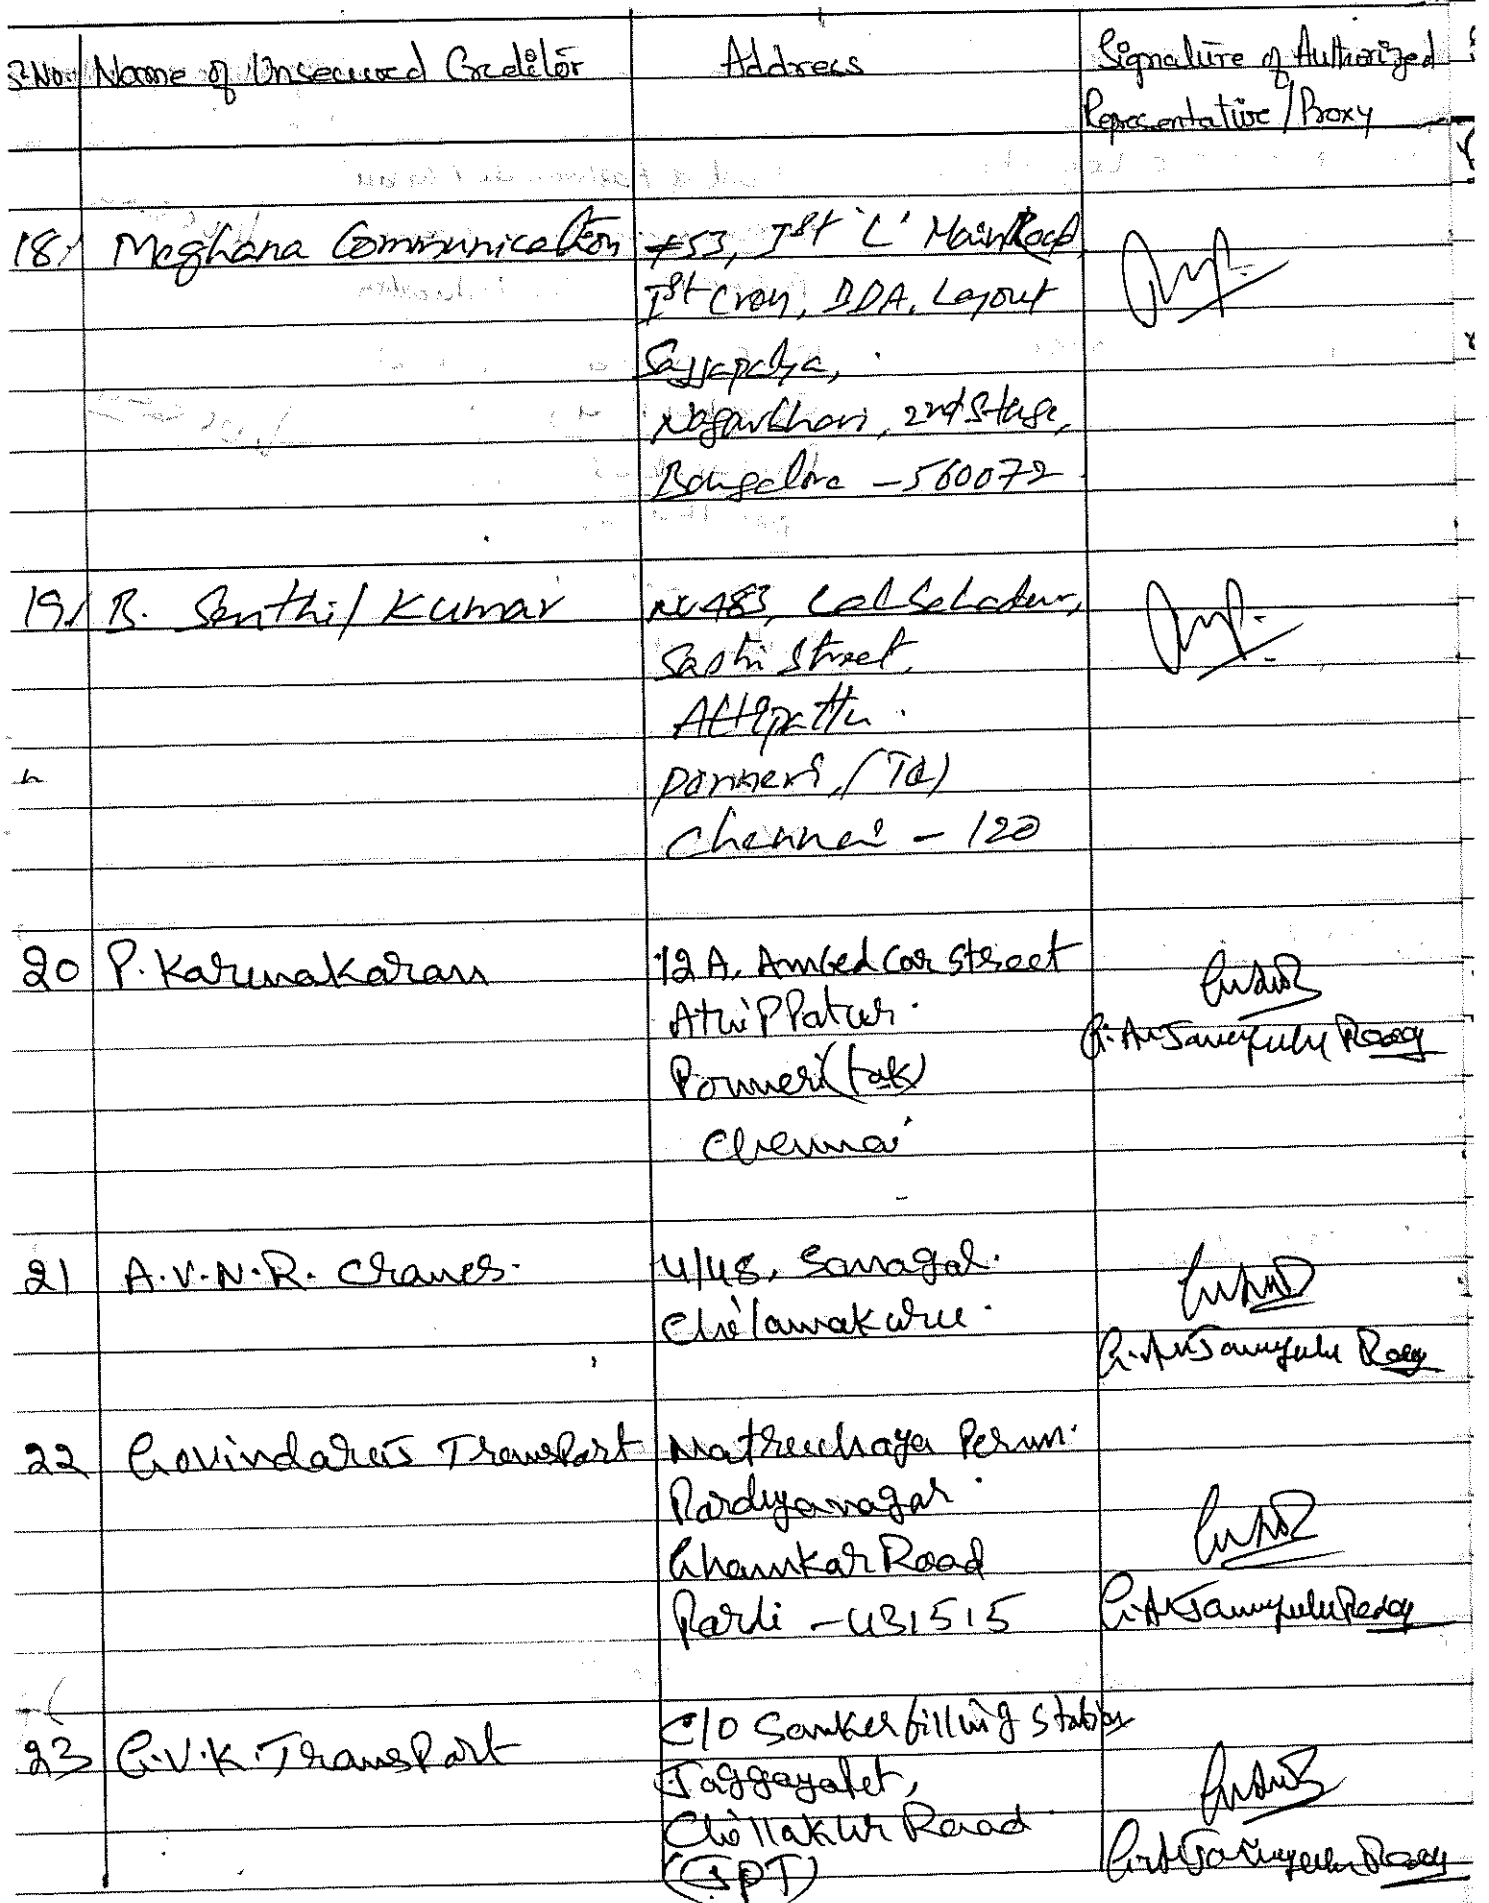 S.No. Name of Unsecured Creditor Address Signature of Authorized
Representative / Proxy
18/ Meghana Communication #53, Ist 'L' Main Road
Ist Cross, BDA, Layout
Sayyapalya,
Nagarbhavi, 2nd Stage,
Bangalore - 560072
19/ B. Senthil Kumar 483,
Sastri Street,
Attipattu.
Ponneri, (Td)
Chennai - 120
20 P. Karunakaran 12 A, Ambedcar Street
AthiPPatur.
Ponneri (tak)
Chennai
G. Anjaneyulu Reddy
21 A.V.N.R. Cranes. 4/48, Sanagal.
Chilamakuru.
G. Anjaneyulu Reddy
22 Govindarus TransPort Matruchaya Perum.
Pardiyanagar.
Ghamkar Road
Parli - 431515
G. Anjaneyulu Reddy
23 G.V.K. TransPort C/O Sanker filling Station
Jaggayapet,
Chillakur Road
(JPT)
G. Anjaneyulu Reddy